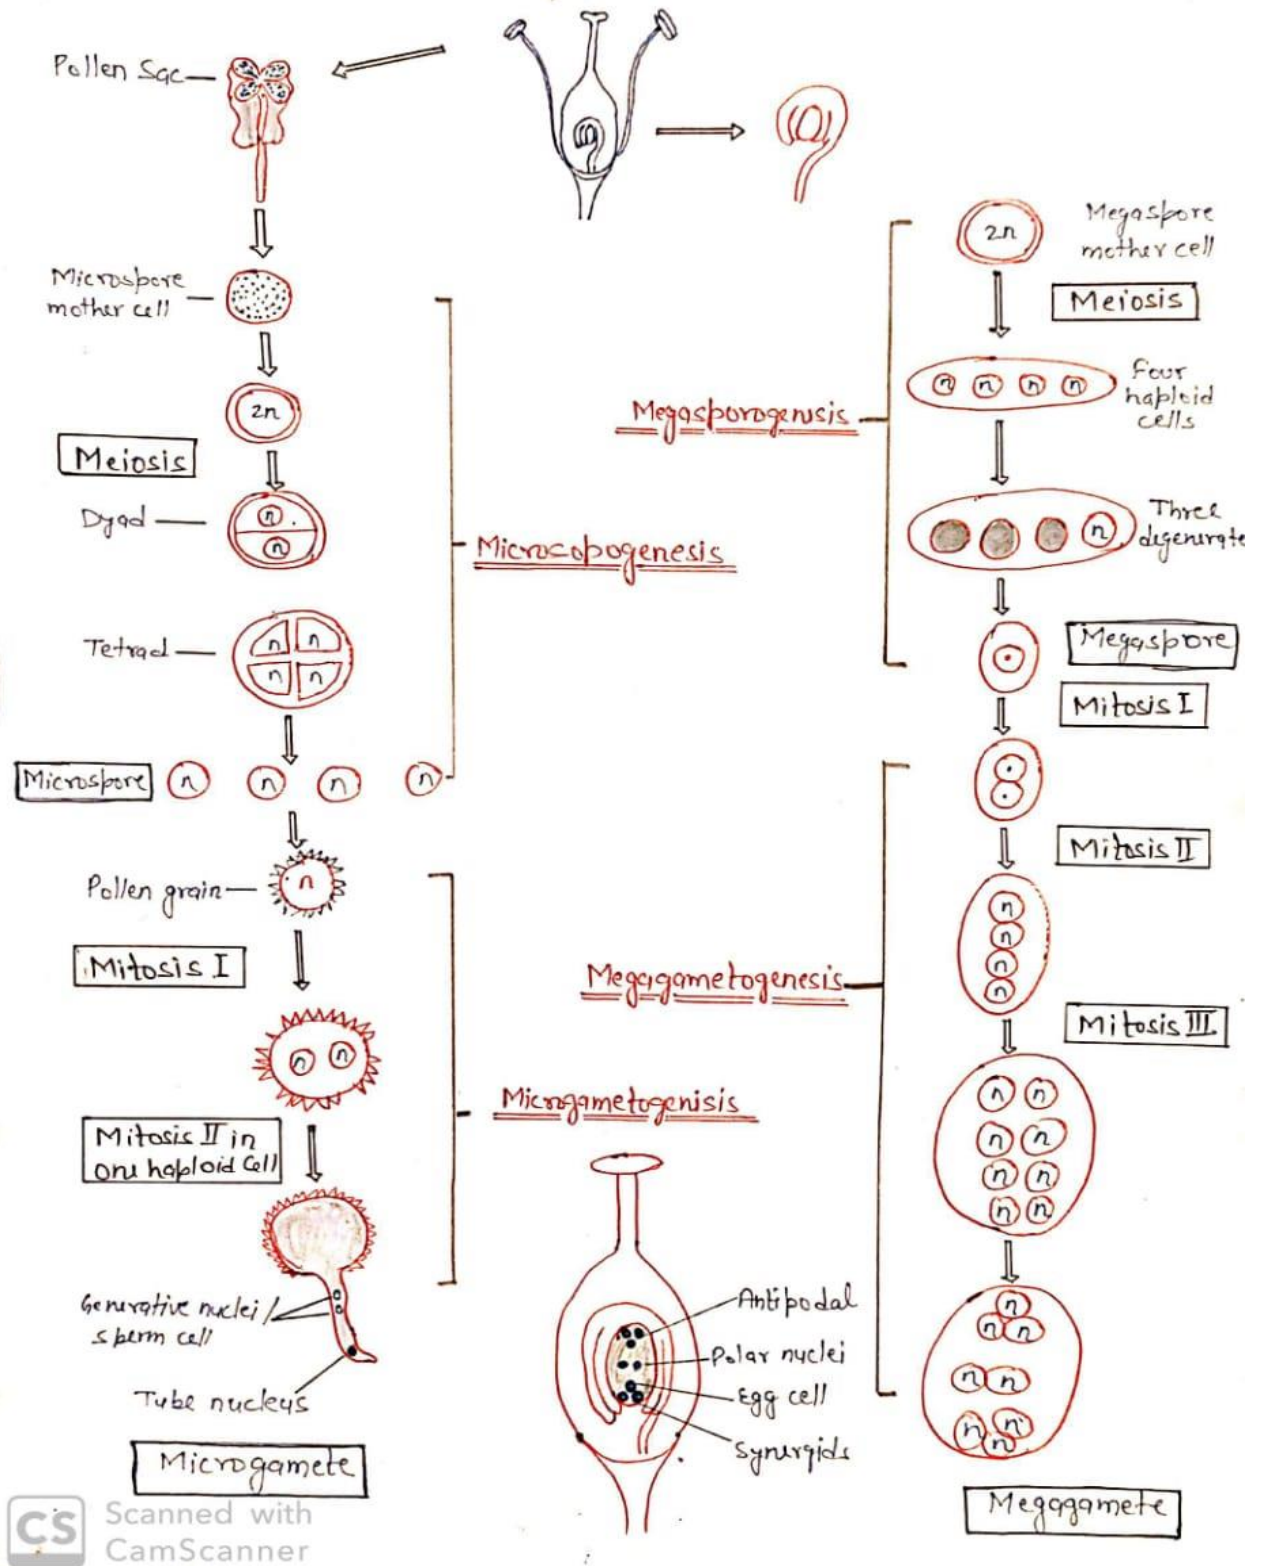 Pollen Sac
Microspore
mother cell
2n
Meiosis
Dyad
n
n
Tetrad
n n
n n
Microspore
n n n n
Pollen grain
n
Mitosis I
n n
Mitosis II in
one haploid cell
Generative nuclei /
sperm cell
Tube nucleus
Microgamete
Microcopogenesis
Microgametogenisis
Megasporogenisis
Megagametogenesis
Antipodal
Polar nuclei
Egg cell
Synergids
2n
Megaspore
mother cell
Meiosis
n n n n
Four
haploid
cells
n
Three
degenerate
Megaspore
Mitosis I
Mitosis II
n
n
n
n
Mitosis III
n n
n n
n n
n n
n
n n
n n
n n
n
Megagamete
CS
Scanned with
CamScanner